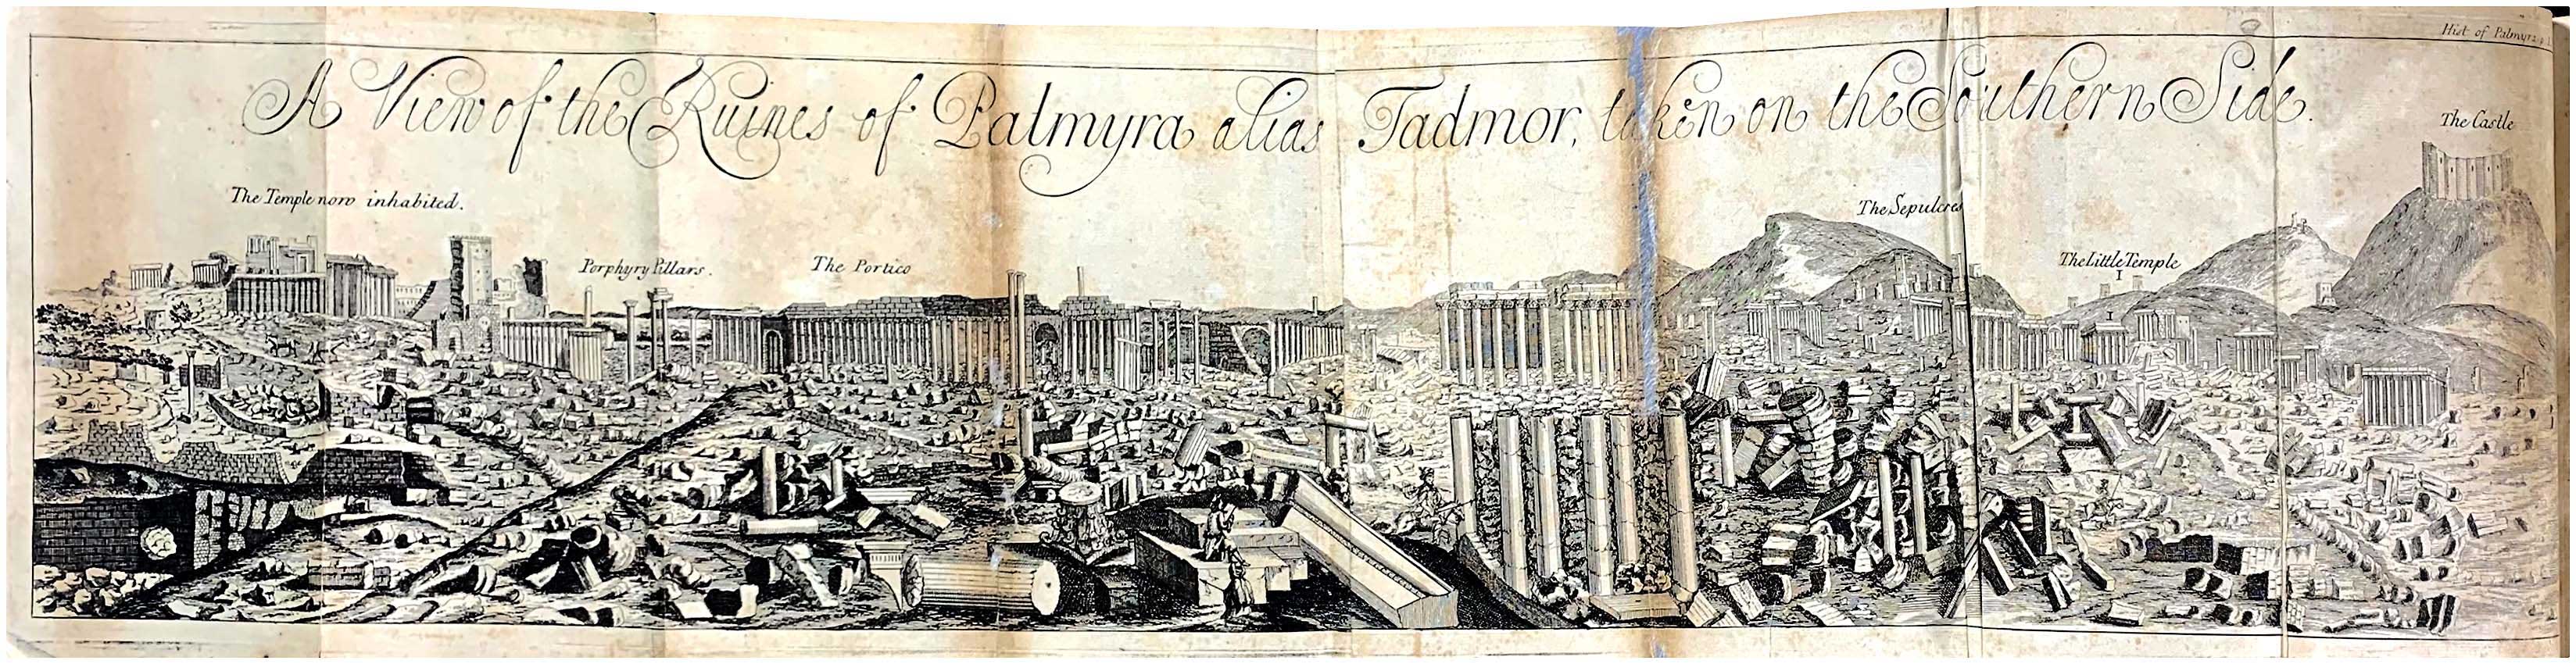 Hist of Palmyra
A View of the Ruines of Palmyra alias Tadmor, taken on the Southern Side.
The Castle
The Temple now inhabited.
The Sepulcres
Porphyry Pillars.
The Portico
The Little Temple
I